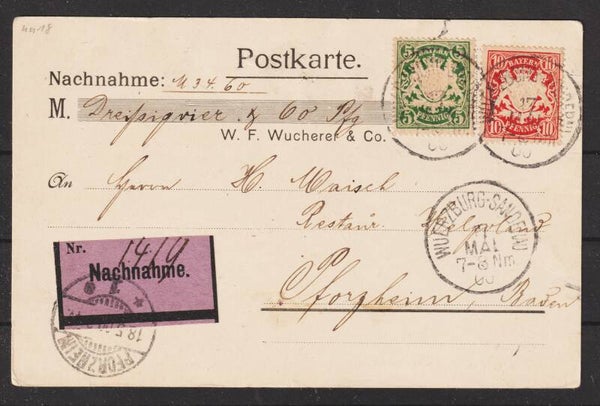 Postkarte.
Nachnahme: M 34.60
M. Dreissigvier & 60 Pfg
W. F. Wucherer & Co.
An Herrn H. Maisch
Restaur.
Pforzheim, Baden
Nr. 1419
Nachnahme.
5 BAYERN 5
5 PFENNIG 5
10 BAYERN 10
10 PFENNIG 10
WUERZBURG-SANDERAU
MAI
7-8 Nm
00
PFORZHEIM
18.5.